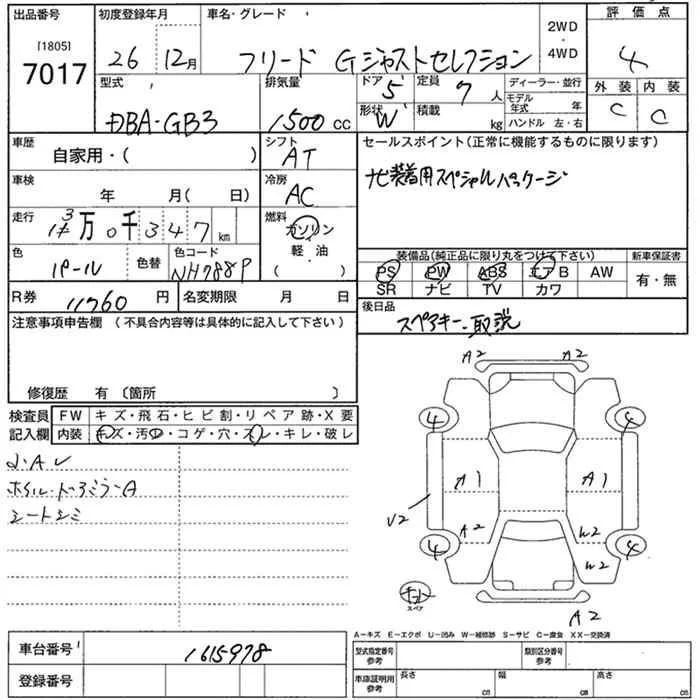 出品番号 初度登録年月 車名・グレード 評価点
[1805]
7017 26 12月 フリード Gジャストセレクション 2WD・4WD 4
型式 排気量 ドア 定員 ディーラー・並行 外装 内装
DBA-GB3 1500cc 5 7人 モデル年式 年 C C
形状 W 積載 kg ハンドル 左・右
車歴 シフト セールスポイント(正常に機能するものに限ります)
自家用・( ) AT
車検 冷房 ナビ装着用スペシャルパッケージ
年 月( 日) AC
走行 燃料
3万0千347km ガソリン・軽油
( )
色 色替 色コード 装備品(純正品に限り丸をつけて下さい) 新車保証書
パール NH788P PS PW ABS エアB AW 有・無
SR ナビ TV カワ
R券 11760円 名変期限 月 日 後日品
注意事項申告欄 (不具合内容等は具体的に記入して下さい) スペアキー・取説
A2 A2
修復歴 有 〔箇所 〕
検査員記入欄 FW キズ・飛石・ヒビ割・リペア跡・X要
内装 キズ・汚レ・コゲ・穴・スレ・キレ・破レ
4 4
ホイル・ドアミラーA A1 A1
シートシミ
U2 A2 W2
4 4
W2
スペア
A2
A-キズ E-エクボ U-凹み W-補修跡 S-サビ C-腐食 XX-交換済
車台番号 1615978 型式指定番号 参考 類別区分番号 参考
登録番号 車庫証明用 参考 長さ cm 幅 cm 高さ cm